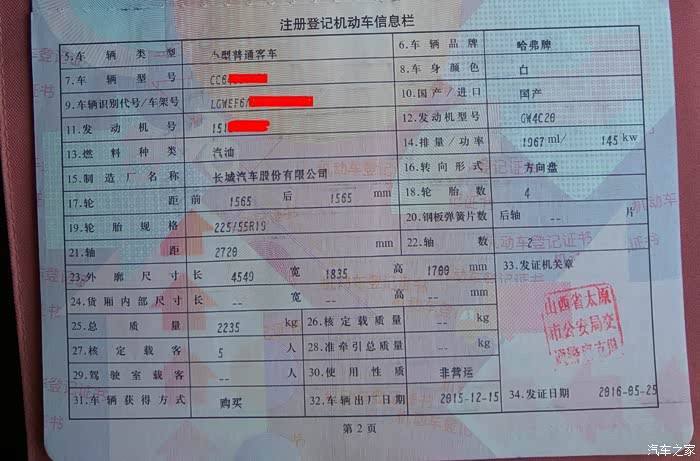 注册登记机动车信息栏
5.车辆类型 小型普通客车 6.车辆品牌 哈弗牌
7.车辆型号 CC64 8.车身颜色 白
9.车辆识别代号/车架号 LGWEF6 10.国产/进口 国产
11.发动机号 151 12.发动机型号 GW4C20
13.燃料种类 汽油 14.排量/功率 1967 ml/ 145 kw
15.制造厂名称 长城汽车股份有限公司 16.转向形式 方向盘
17.轮距 前 1565 后 1565 mm 18.轮胎数 4
19.轮胎规格 225/55R19 20.钢板弹簧片数 后轴 -- 片
21.轴距 2720 mm 22.轴数 2
23.外廓尺寸 长 4549 宽 1835 高 1700 mm 33.发证机关章
24.货厢内部尺寸 长 -- 宽 -- 高 -- mm
25.总质量 2235 kg 26.核定载质量 -- kg
27.核定载客 5 人 28.准牵引总质量 -- kg
29.驾驶室载客 -- 人 30.使用性质 非营运
31.车辆获得方式 购买 32.车辆出厂日期 2015-12-15 34.发证日期 2016-05-25
山西省太原
市公安局交
第2页
汽车之家